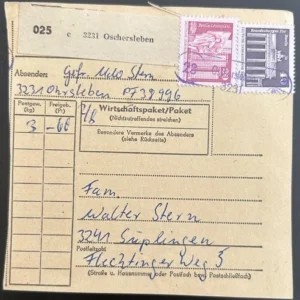 025 c 3231 Oschersleben
Absender: Gefr. Stern
3231 Ohrsleben PF 38996
Postgew. (kg)
Freigeb. (F.)
Wirtschaftspaket/Paket
(Nichtzutreffendes streichen)
3 -60
Besondere Vermerke des Absenders
(siehe Rückseite)
Fam.
Walter Stern
3241 Süplingen
Postleitzahl
Flechtinger Weg 5
(Straße u. Hausnummer oder Postfach bzw. Postschließfach)